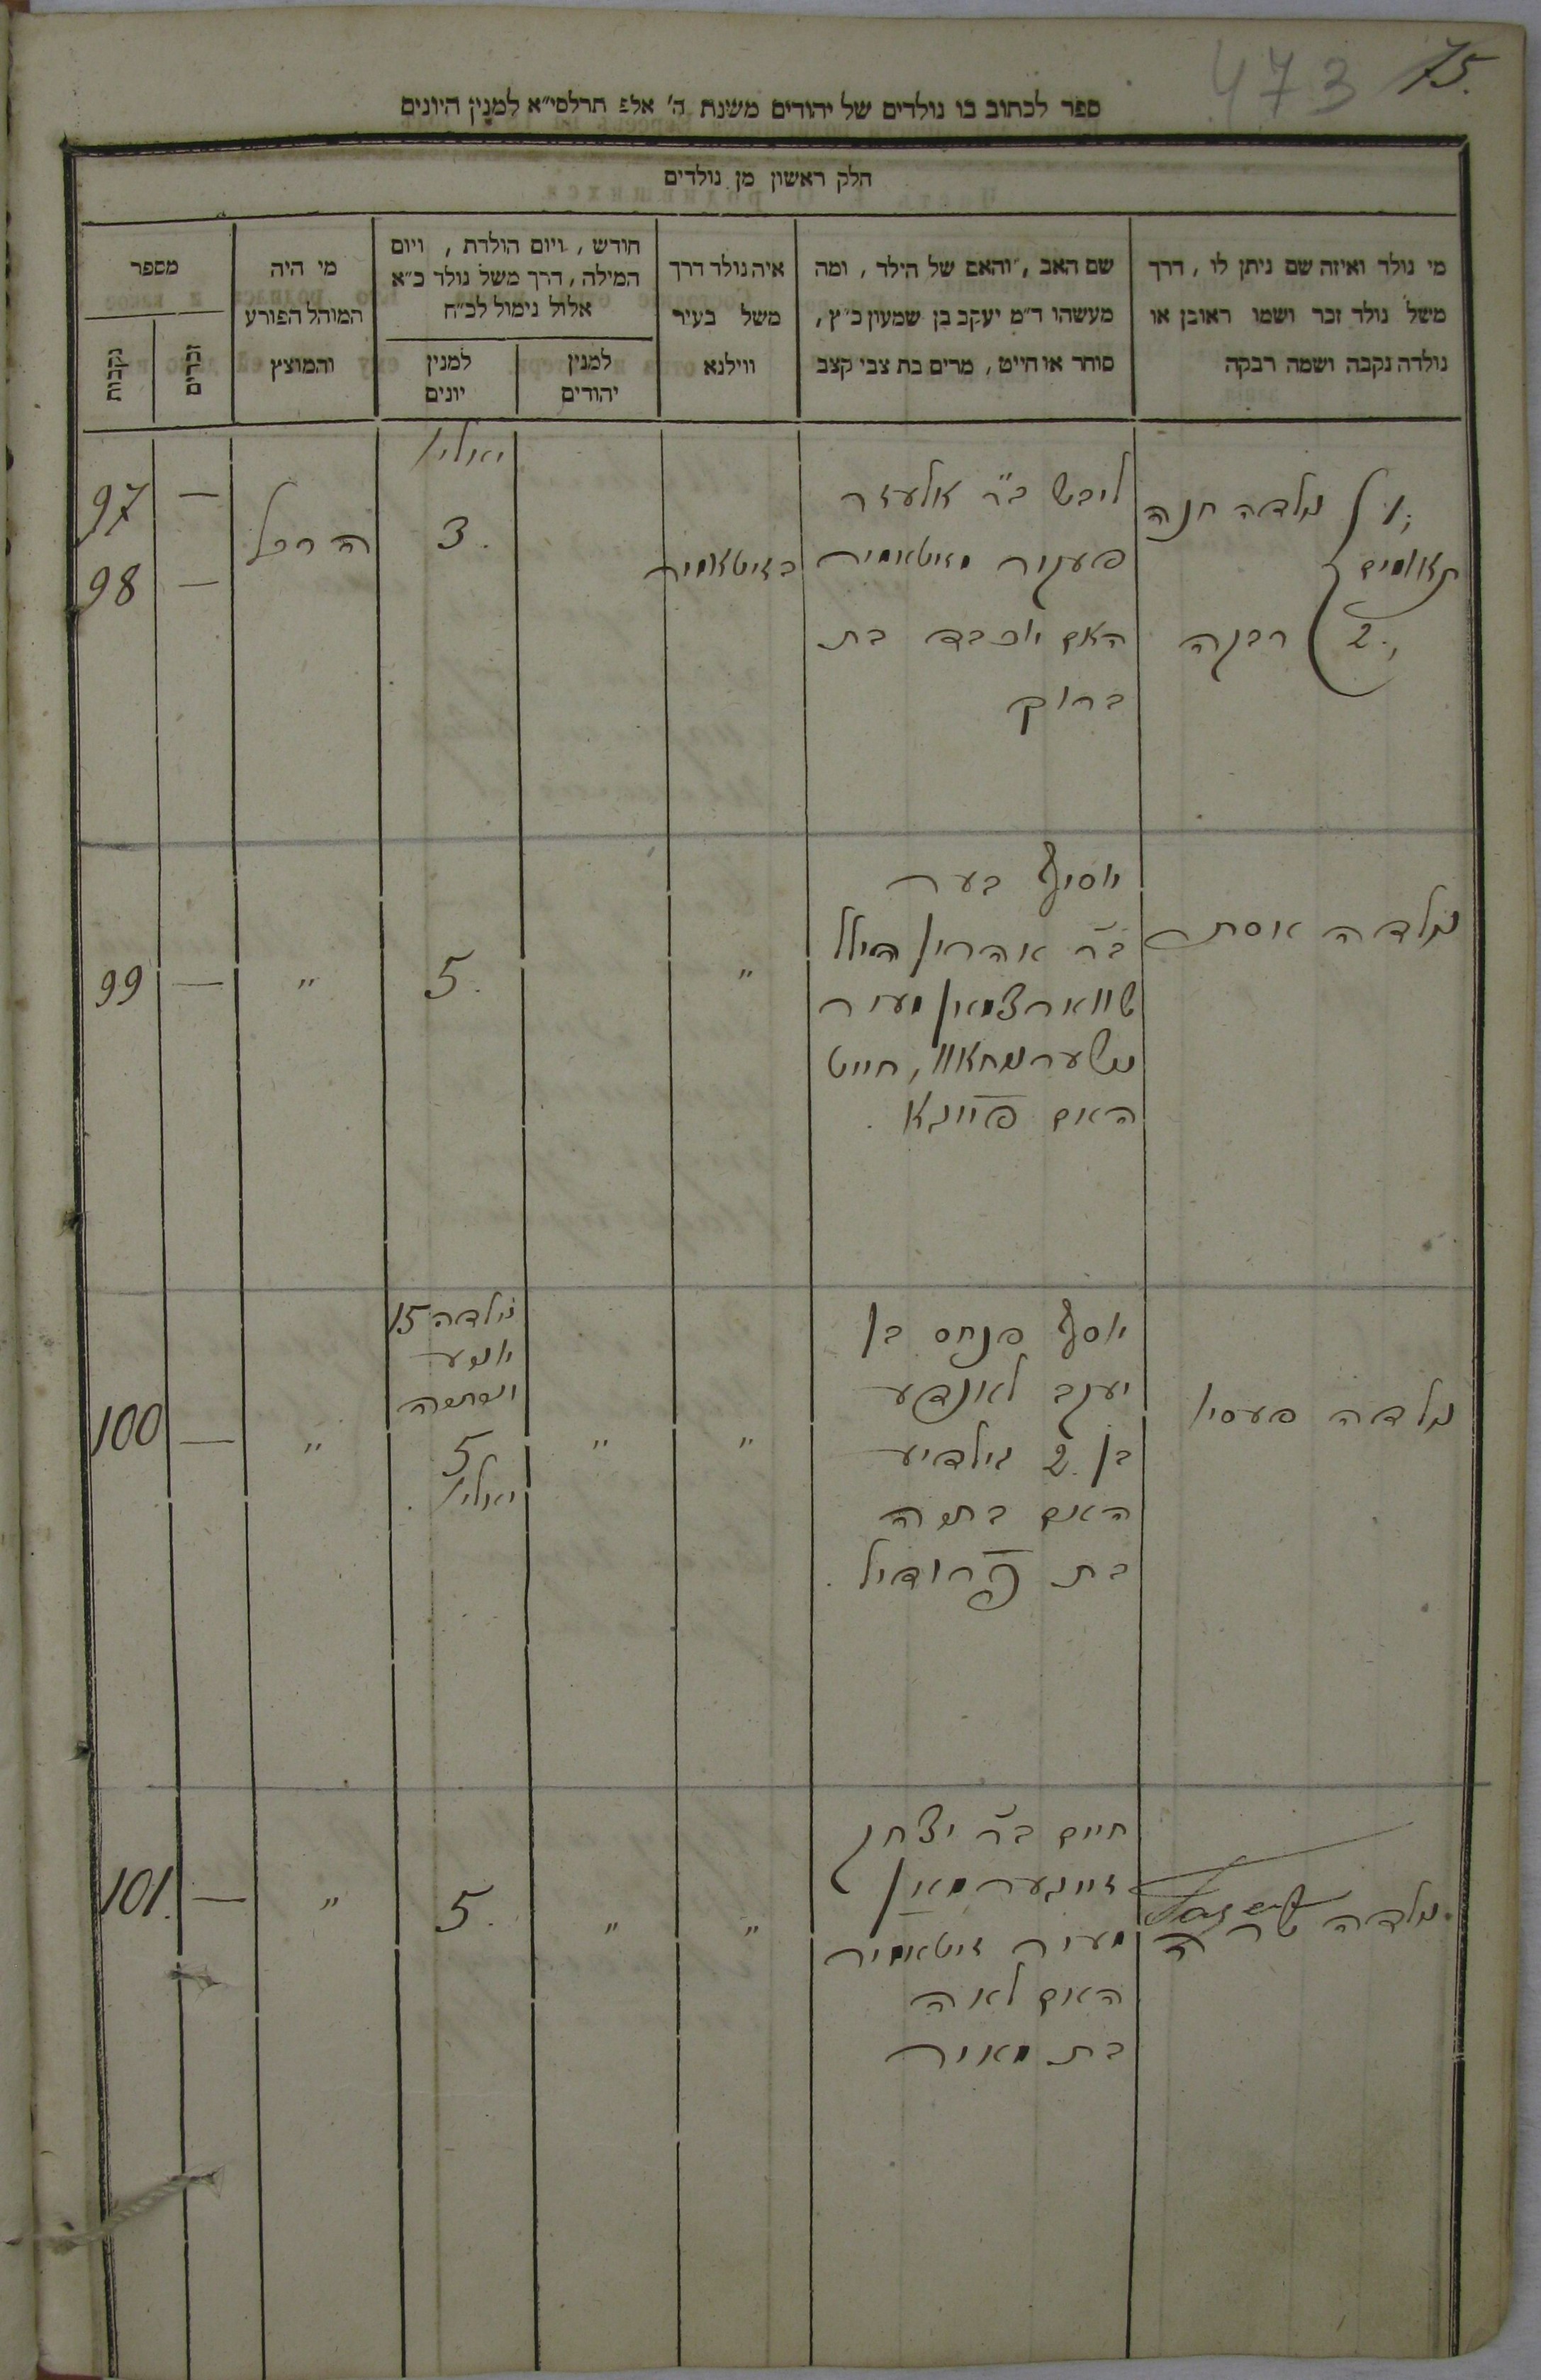 473 75.
ספר לכתוב בו נולדים של יהודים משנת ה' אלפ תרלסי"א למנין היונים
חלק ראשון מן נולדים
מי נולד ואיזה שם ניתן לו, דרך
משל נולד זכר ושמו ראובן או
נולדה נקבה ושמה רבקה
שם האב, והאם של הילד, ומה
מעשהו ד"מ יעקב בן שמעון כ"ץ,
סוחר או חייט, מרים בת צבי קצב
איה נולד דרך
משל בעיר
ווילנא
חודש, ויום הולדת, ויום
המילה, דרך משל נולד כ"א
אלול נימול לכ"ח
למנין
יהודים
למנין
יונים
מי היה
המוהל הפורע
והמוצץ
מספר
זכרים
נקבות
1. נולדה חנה
תאומים
2. רבקה
ליבש ב"ר אלעזר
מזיטאמיר
האם יוכבד בת
ברוך
בזיטאמיר
יאולי
3.
—
—
97
98
נולדה אסתר
יוסיף בער
ב"ר אהרין הילל
שווארצמאן מעיר
חייט
האם פייגא.
"
5.
"
—
99
נולדה פעסי
יוסף פנחס בן
יעקב לאנדע
בן 2 גילדיע
האם בתיה
בת פרודיל.
"
"
נולדה 15
יוני
5
יאולי.
"
—
100
נולדה שרה
חיים ב"ר יצחק
זינגערמאן
מעיר זיטאמיר
האם לאה
בת מאיר
"
"
5.
"
—
101.